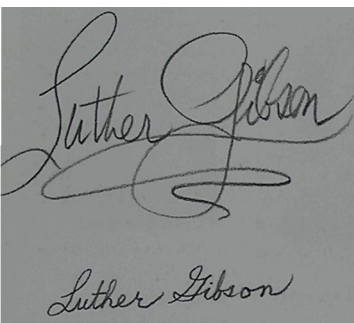 Luther Gibson
Luther Gibson